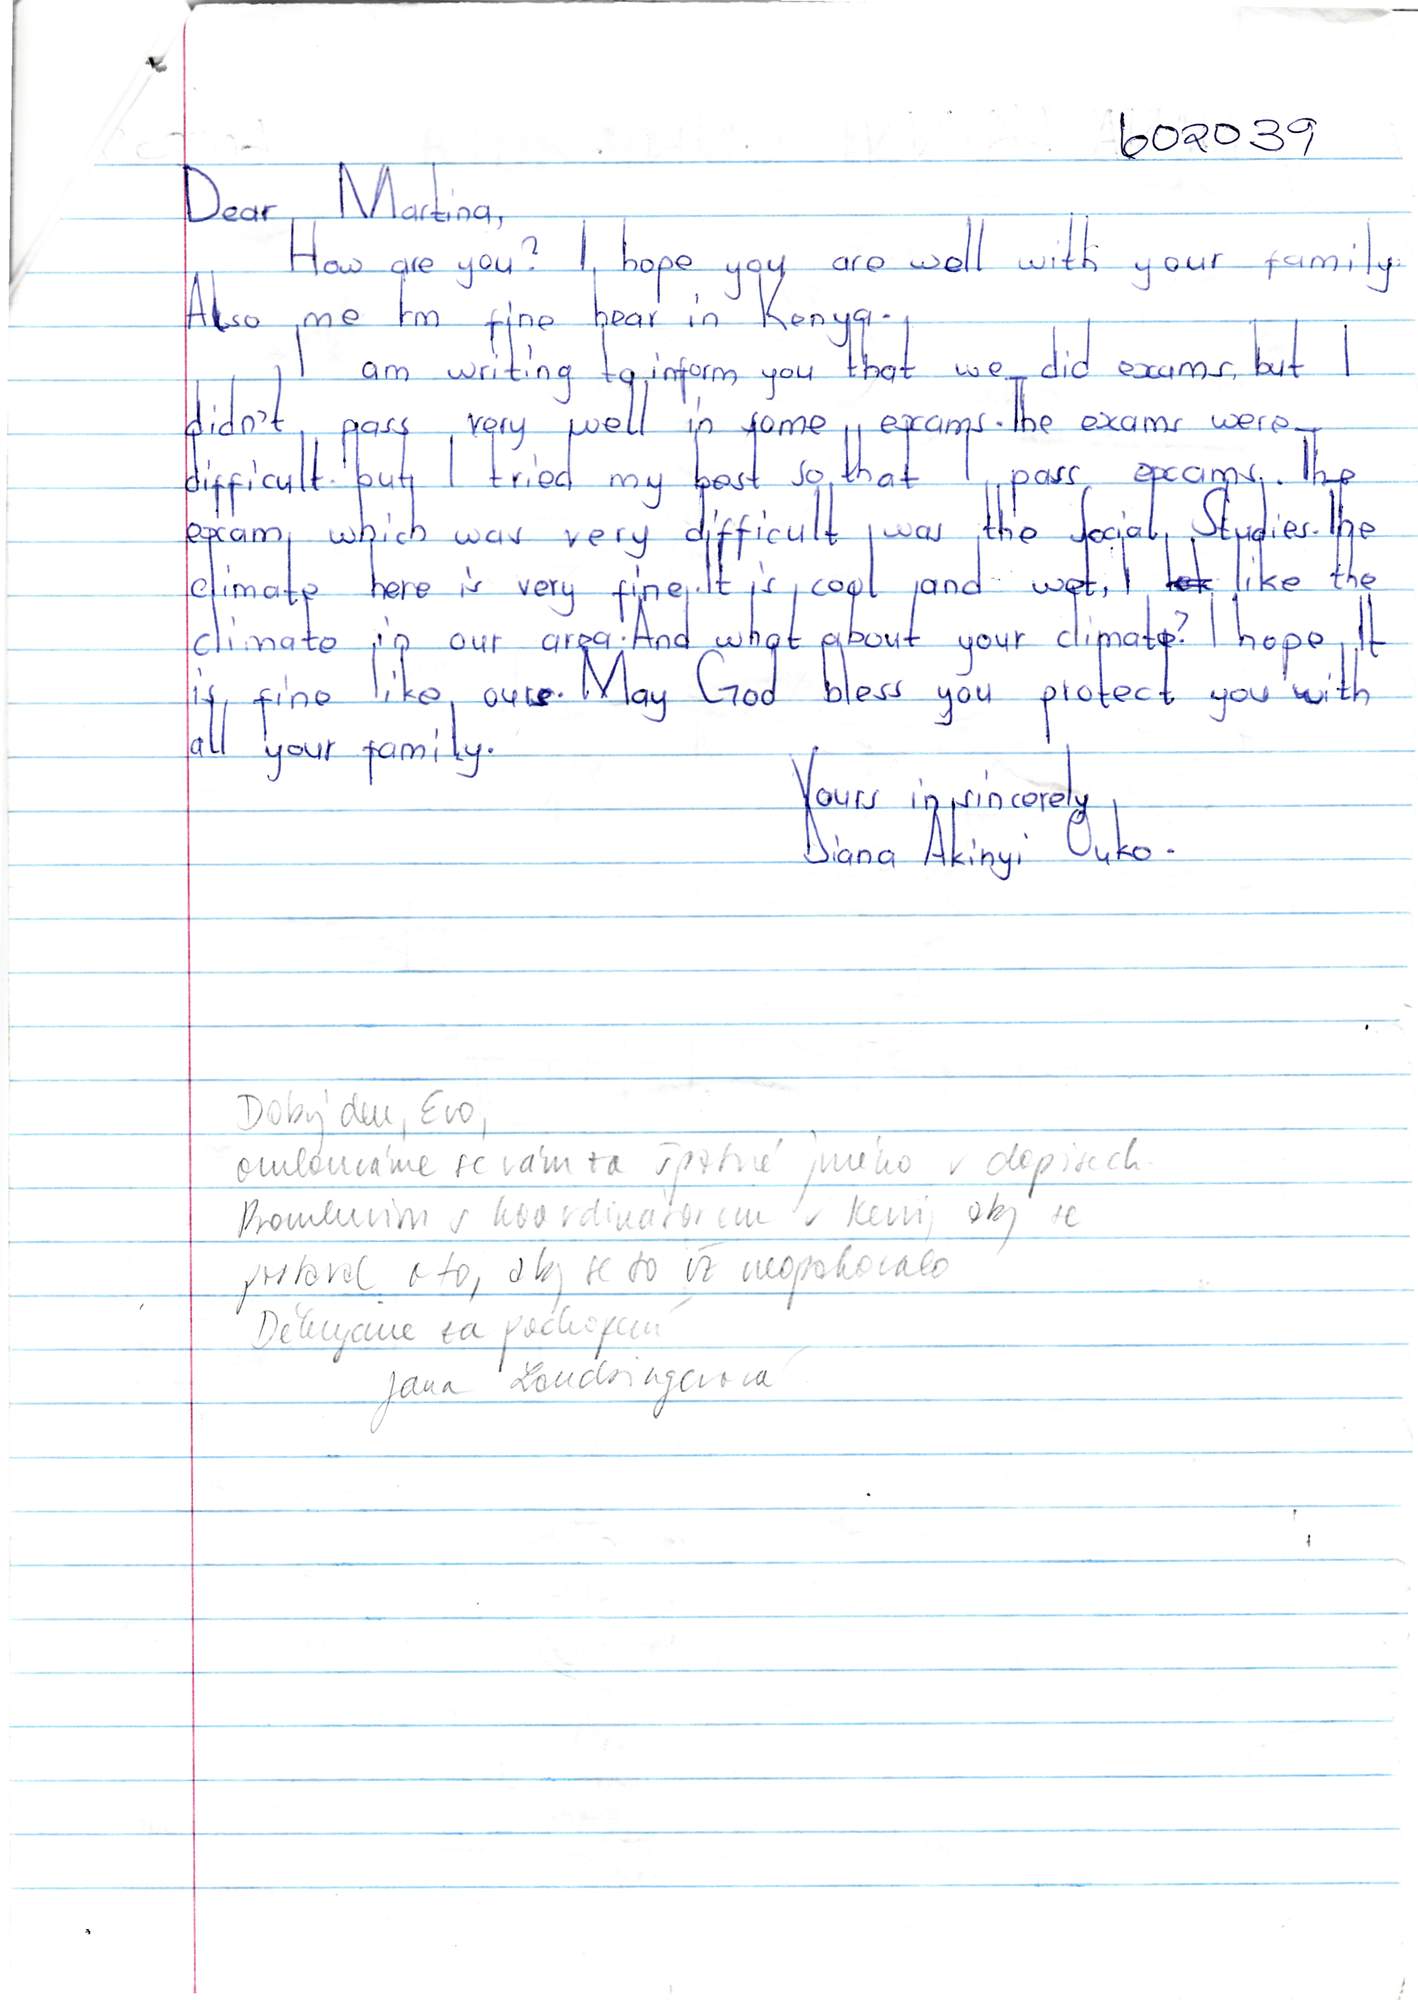 602039
Dear Martina,
How are you? I hope you are well with your family.
Also me I'm fine hear in Kenya.
I am writing to inform you that we did exams, but I
didn't pass very well in some exams. The exams were
difficult but I tried my best so that I pass exams. The
exam which was very difficult was the Social Studies. The
climate here is very fine. It is cool and wet, I like the
climate in our area. And what about your climate? I hope It
is fine like ours. May God bless you protect you with
all your family.
Yours in sincerely
Diana Akinyi Ouko.
Dobrý den, Evo,
omlouváme se vám za špatné jméno v dopisech.
Promluvím s koordinátorem v Keni, aby se
postaral o to, aby se to už neopakovalo
Děkujeme za pochopení
Jana